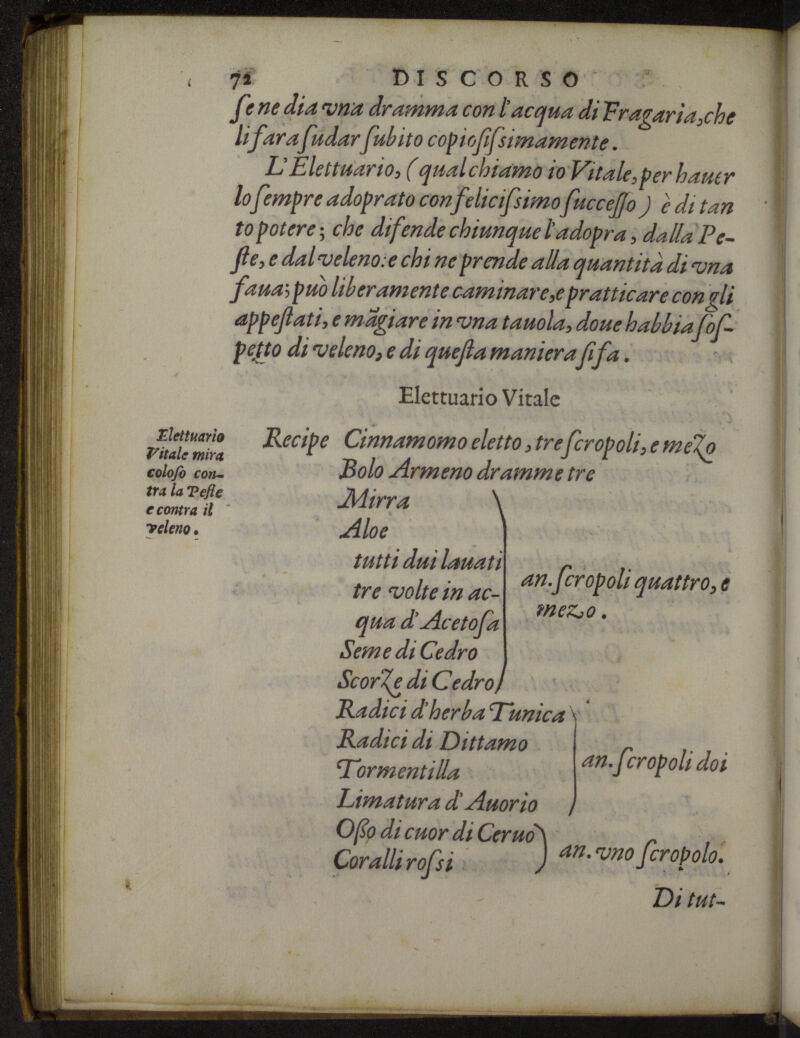 72 DISCORSO
ſe ne dia vna dramma con l'acqua di Fragaria,che
li fara ſudar ſubito copioſiſsimamente.
L'Elettuario, (qual chiamo io Vitale,per hauer
lo ſempre adoprato con feliciſsimo ſucceſſo) è di tan
to potere; che difende chiunque l'adopra, dalla Pe-
ſte, e dal veleno: e chi ne prende alla quantità di vna
faua; può liberamente caminare,e pratticare con gli
appeſtati, e māgiare in vna tauola, doue habbia ſoſ-
petto di veleno, e di queſta maniera ſi fa.
Elettuario Vitale
Elettuario
Vitale mira
coloſo con-
tra la Peſte
e contra il
veleno.
Recipe Cinnamomo eletto, tre ſcropoli, e mezo
Bolo Armeno dramme tre
Mirra
Aloe
tutti dui lauati
tre volte in ac-
qua d'Acetoſa
Seme di Cedro
Scorze di Cedro
an. ſcropoli quattro, e
mezo.
Radici d'herba Tunica
Radici di Dittamo
Tormentilla
Limatura d'Auorio
an. ſcropoli doi
Oſſo di cuor di Ceruo
Coralli roſsi
an. vno ſcropolo.
Di tut-